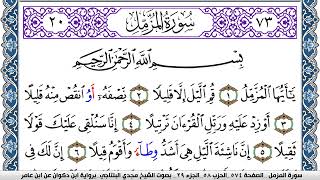 ٧٣ سُورَةُ الْمُزَّمِّلِ ٢٠
بِسْمِ اللَّهِ الرَّحْمَٰنِ الرَّحِيمِ
يَٰٓأَيُّهَا الْمُزَّمِّلُ ١ قُمِ الَّيْلَ إِلَّا قَلِيلًا ٢ نِّصْفَهُۥٓ أَوُ انْقُصْ مِنْهُ قَلِيلًا
٣ أَوْ زِدْ عَلَيْهِ وَرَتِّلِ الْقُرْءَانَ تَرْتِيلًا ٤ إِنَّا سَنُلْقِى عَلَيْكَ قَوْلًا
ثَقِيلًا ٥ إِنَّ نَاشِئَةَ الَّيْلِ هِىَ أَشَدُّ وِطَآءً وَأَقْوَمُ قِيلًا ٦ إِنَّ لَكَ فِى
سورة المزمل الصفحة ٥٧٤ الحزب ٥٨ الجزء ٢٩ بصوت الشيخ مجدي البنتلاجي برواية ابن ذكوان عن ابن عامر